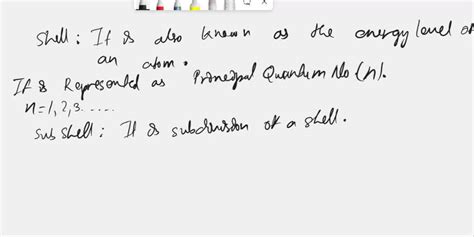 Shell: It is also known as the energy level of
an atom.
It is Represented as Principal Quantum No (n).
n=1, 2, 3.....
Sub shell: It is subdivision of a shell.